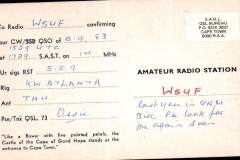 To Radio W5UF confirming
our CW/SSB QSO of 8.9.83
1529 UTC
1729 S.A.S.T. on 14 MHz
Ur sigs RST 559
Rig KW ATLANTA
Ant
Pse/Tnx QSL. 73
"Like a flower with five pointed petals, the
Castle of the Cape of Good Hope stands at the
entrance to Cape Town."
S.A.R.L.
QSL BUREAU
CAPE TOWN
8000 R.S.A.
AMATEUR RADIO STATION
W5UF
look for
me again soon